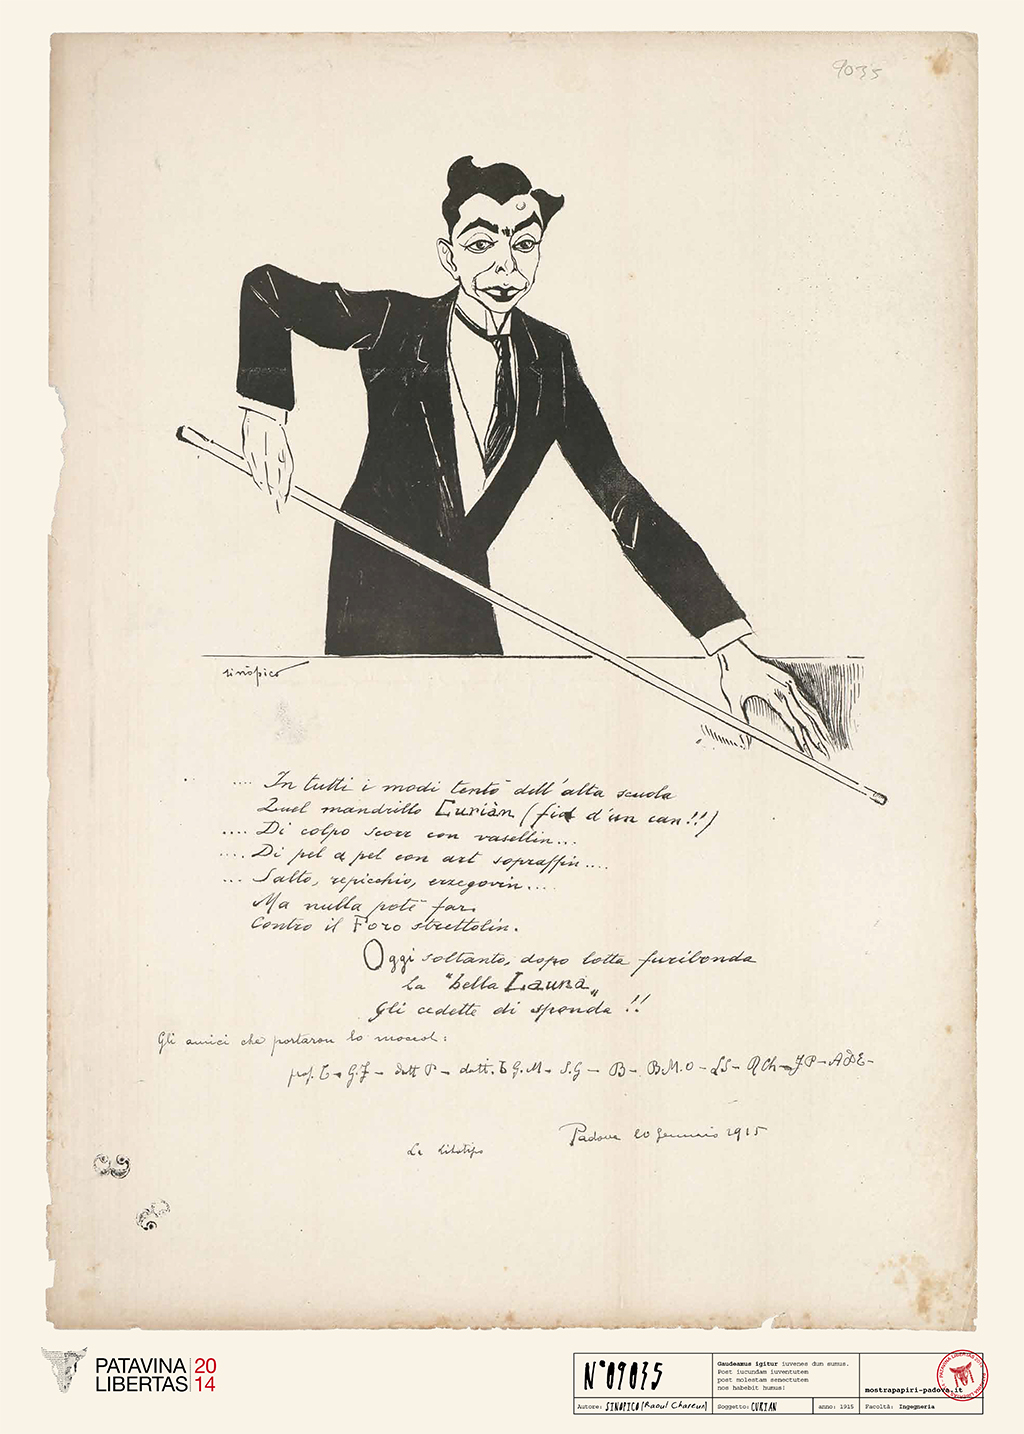 9035
sinòpico
.... In tutti i modi tentò dell'alta scuola
Quel mandrillo Curiàn (fiol d'un can!!)
.... Di colpo secc con vasellin...
.... Di pel a pel con art sopraffin....
... Salto, repicchio, erzegovin....
Ma nulla potè far
Contro il Foro strettolin.
Oggi soltanto, dopo lotta furibonda
la "bella Laura"
Gli cedette di sponda !!
Gli amici che portaron lo moccol:
prof. T - G.F - dott P - dott. T G.M - S.G - B - B.M.O - LS - R Ch - J P - A D E -
Padova 20 Gennaio 1915
La Litotipo
PATAVINA LIBERTAS 2014
N°09035
Gaudeamus igitur iuvenes dum sumus.
Post iucundam iuventutem
post molestam senectutem
nos habebit humus!
mostrapapiri-padova.it
PATAVINA LIBERTAS
Autore: SINOPICO (Raoul Chareun)
Soggetto: CURIAN
anno: 1915
Facoltà: Ingegneria